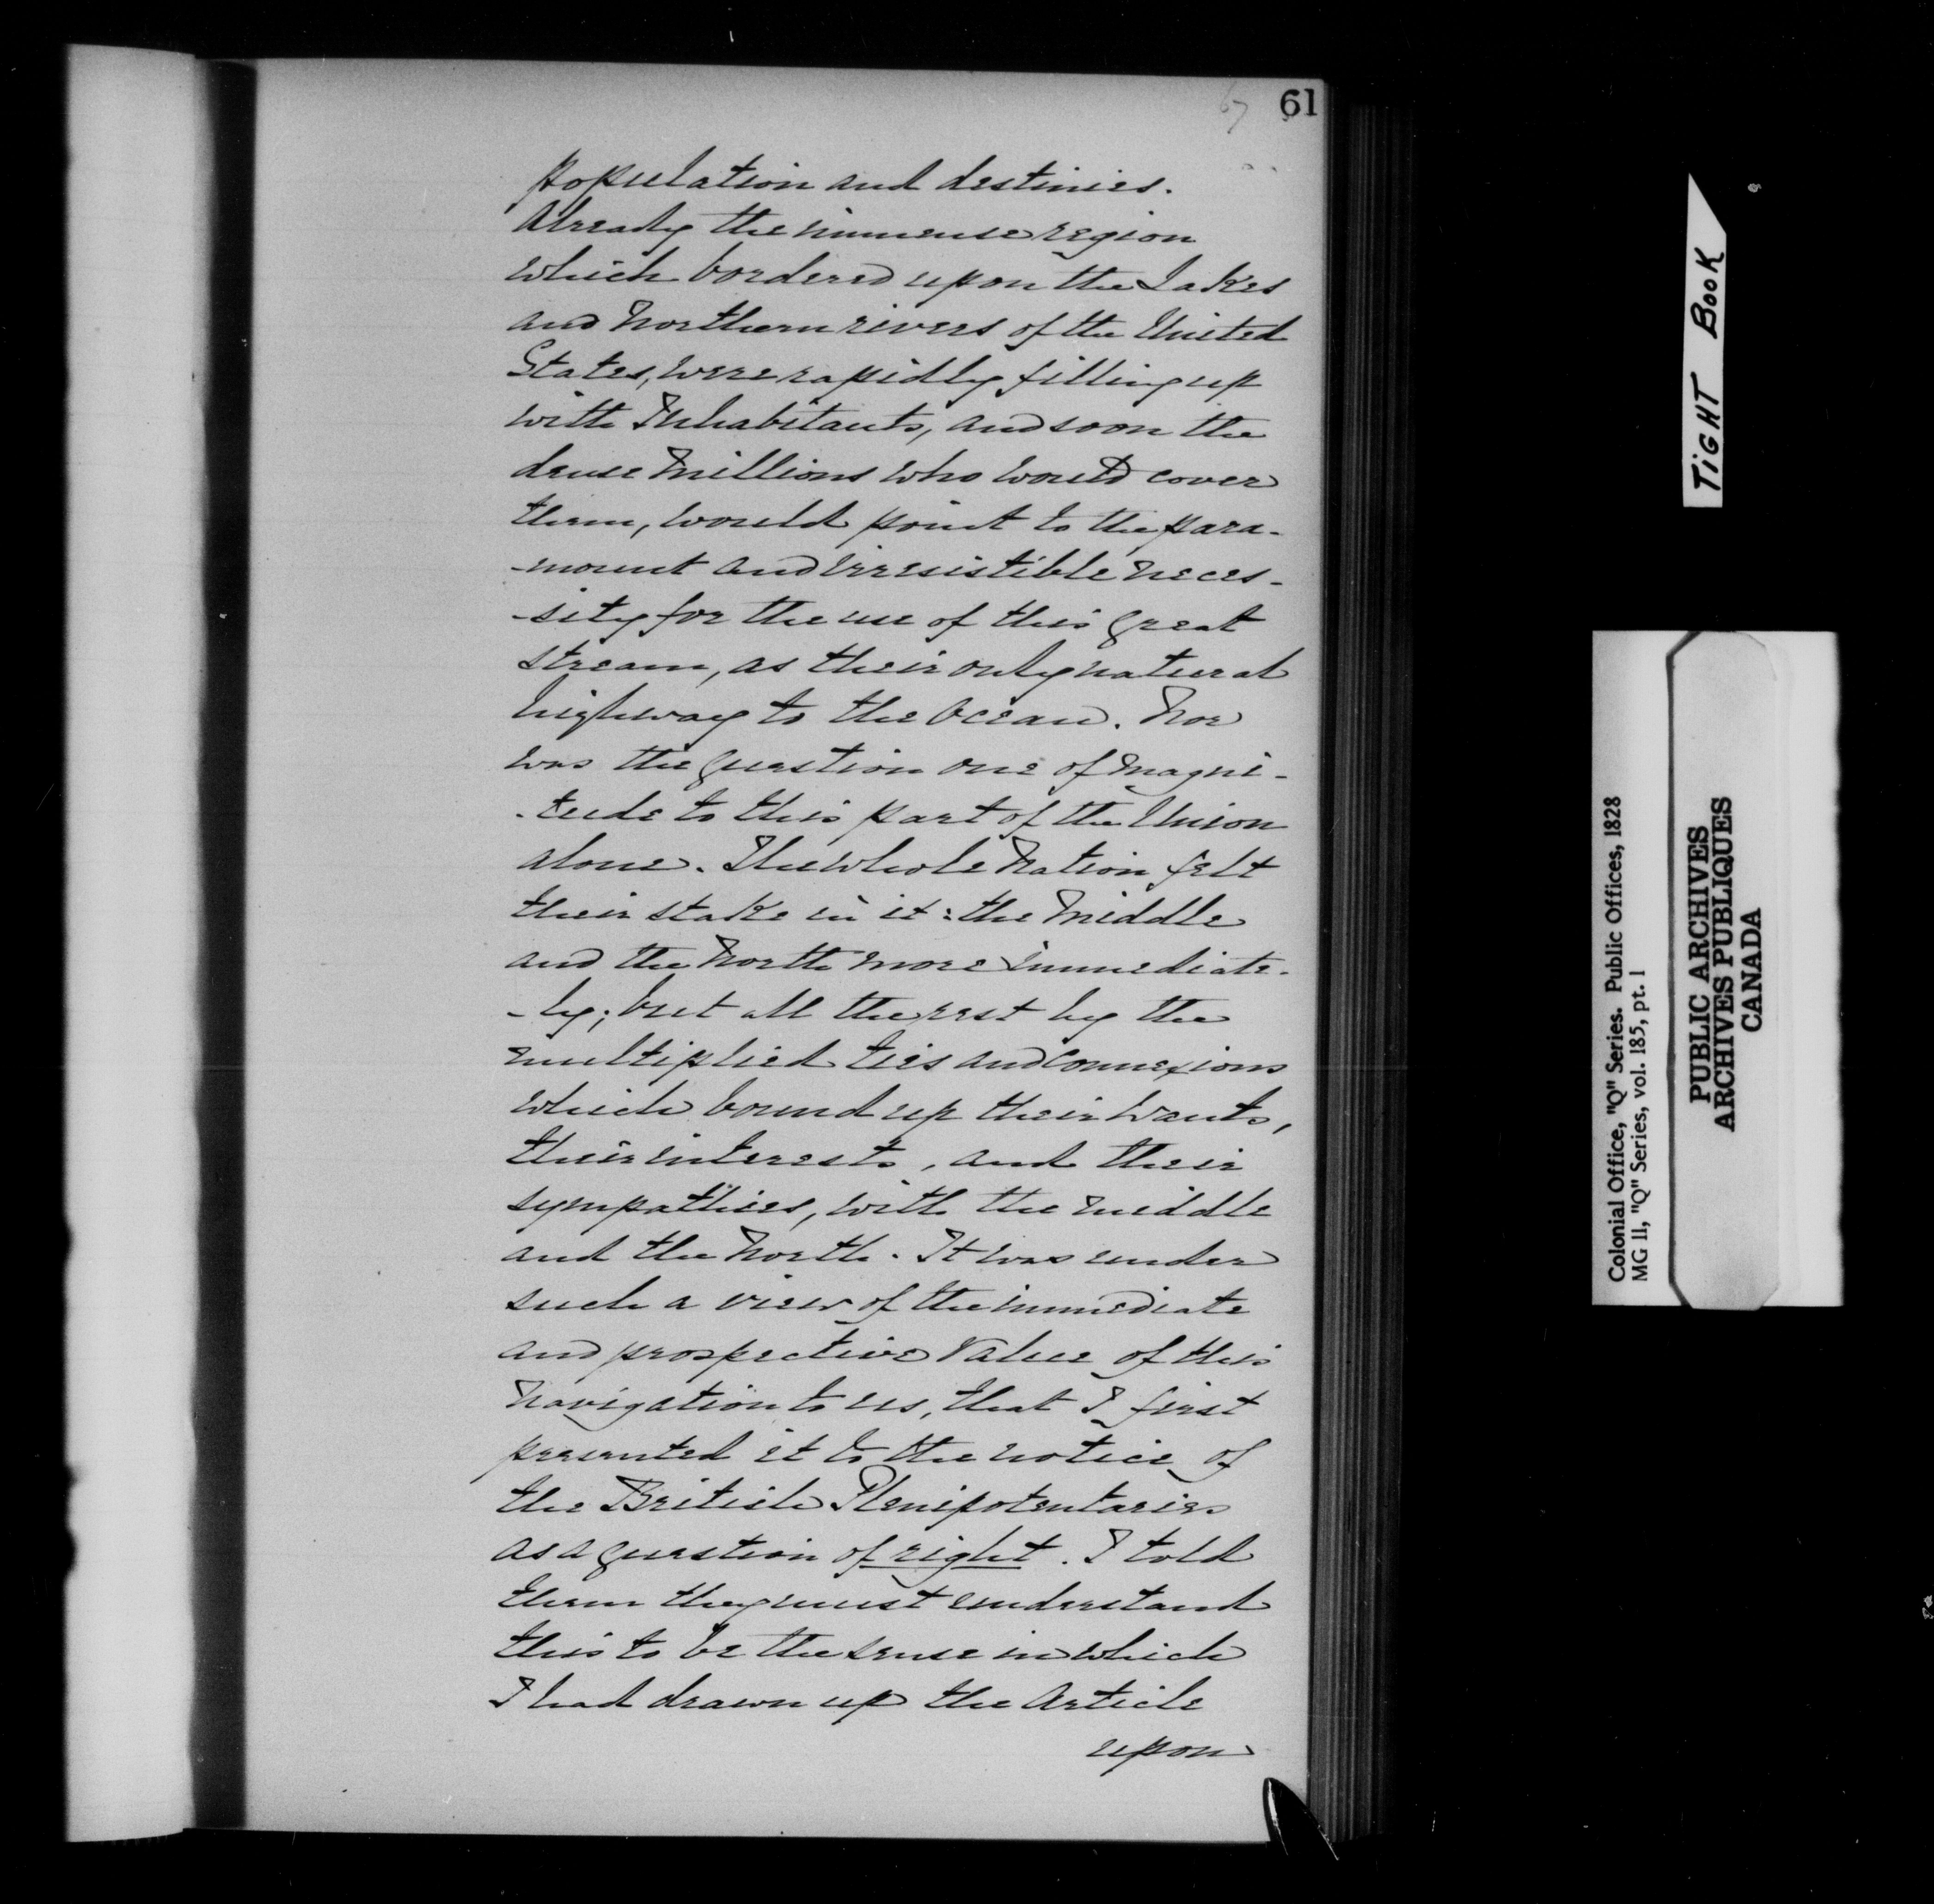 67 61
population and destinies.
Already the immense region
which bordered upon the Lakes
and Northern rivers of the United
States, were rapidly filling up
with Inhabitants, and soon the
dense Millions who would cover
them, would point to the para-
-mount and irresistible neces-
-sity for the use of this great
stream, as their only natural
highway to the Ocean. Nor
was the question one of magni-
-tude to this part of the Union
alone. The whole Nation felt
their stake in it: the Middle
and the North more immediate-
-ly; but all the rest by the
multiplied ties and connexions
which bound up their wants,
their interests, and their
sympathies, with the Middle
and the North. It was under
such a view of the immediate
and prospective Value of this
Navigation to us, that I first
presented it to the notice of
the British Plenipotentaries
as a question of right. I told
them they must understand
this to be the sense in which
I had drawn up the Article
upon
TiGHT BOOK
Colonial Office, "Q" Series. Public Offices, 1828
MG 11, "Q" Series, vol. 185, pt. 1
PUBLIC ARCHIVES
ARCHIVES PUBLIQUES
CANADA